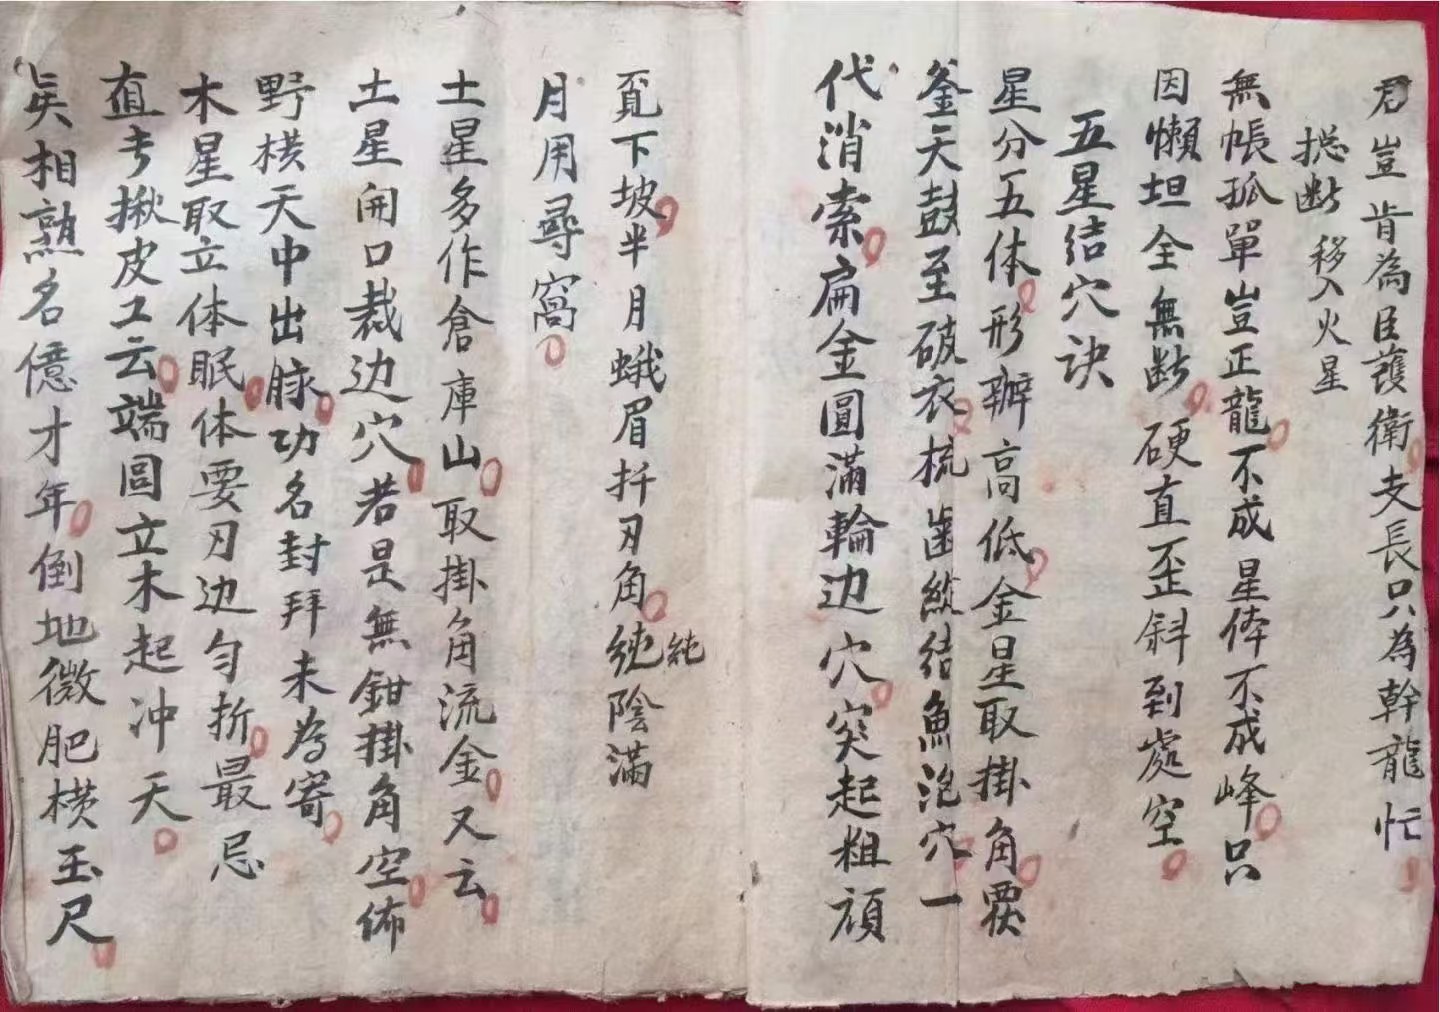 君豈肯為臣護衛支長只為幹龍忙
捴断 移入火星
無帳孤單豈正龍不成星体不成峰只
因懶坦全無断硬直歪斜到處空
五星结穴诀
星分五体形辦高低金星取掛角覆
釜天鼓至破衣梳齒縱结魚泡穴一
代消索扁金圓滿輪边穴突起粗頑
覓下坡半月蛾眉扦刃角純陰滿
純
月用尋窩
土星多作倉庫山取掛角流金又云
土星開口裁边穴若是無鉗掛角空佈
野横天中出脉功名封拜未為寄
木星取立体眠体要刃边匀折最忌
直考揪皮工云端圓立木起冲天
矣相熟名億才年倒地微肥横玉尺